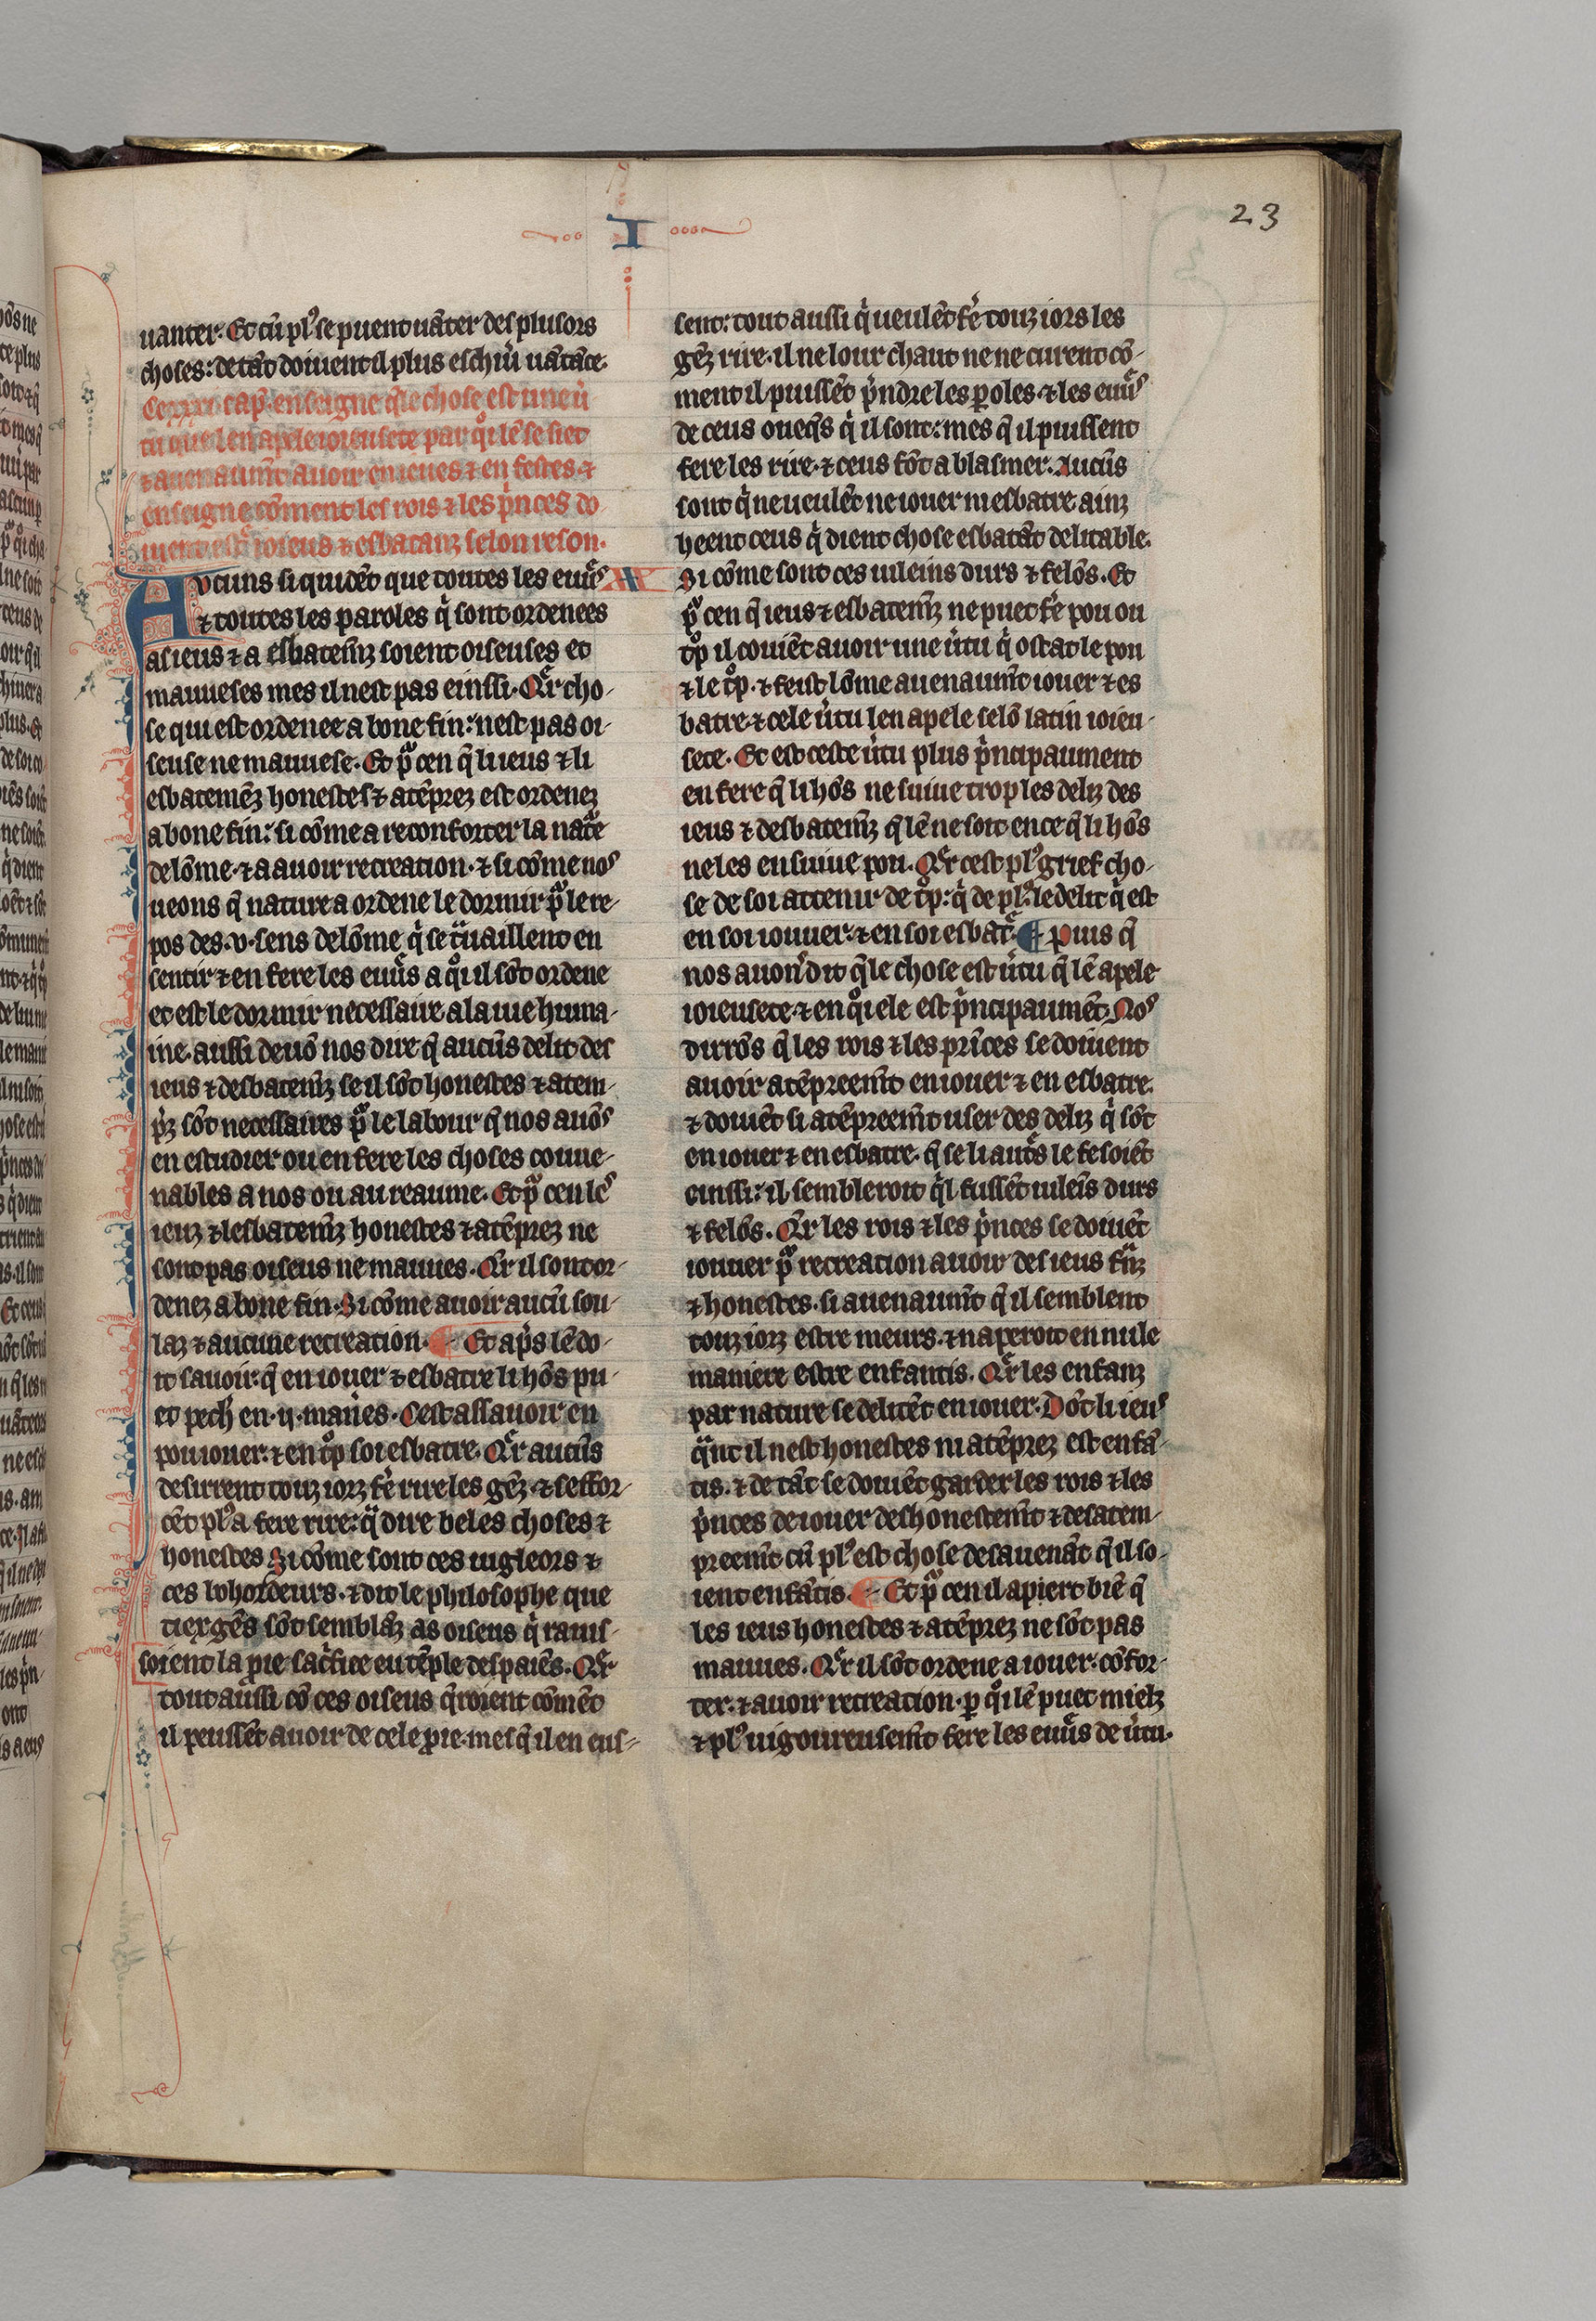 I
23
uanter. Et cū pl9 se puent uāter des plusors
choses: de tāt doiuent il plus eschiu' uātāce.
cap̄. enseigne q̄le chose est une u'
tu que len apele ioieusete par q̊i lē se siet
auenaumt̄ auoir en ieues ⁊ en festes ⁊
enseigne cōment les rois ⁊ les p'nces do
iuent ioieus ⁊ esbatanz selon reson.
Aucuns si quidēt que toutes les euuͬs
⁊ toutes les paroles q' sont ordenees
as ieus ⁊ a esbatem̄z soient oiseuses et
mauueses mes il nest pas einssi. Qͣr cho-
se qui est ordenee a bone fin: nest pas oi
seuse ne mauuese. Et pͣ cen q̄ li ieus ⁊ li
esbatemēz honestes ⁊ atēprez est ordenez
a bone fin: si cōme a reconforter la natͬe
de lōme. ⁊ a auoir recreation. ⁊ si cōme no9
ueons q̄ nature a ordene le dormir pͣ le re-
pos des .v. sens de lōme q' se tͣuaillent en
sentir ⁊ en fere les euuͬs a q̊i il sōt ordene
et est le dormir necessaire a la uie huma-
ine. aussi deuō nos dire q̄ aucūs delit des
ieus ⁊ desbatem̄z se il sōt honestes ⁊ atem-
p'z sōt necessaires pͣ le labour q̄ nos auōs
en estudier ou en fere les choses couue-
nables a nos ou au reaume. Et pͣ cen les
ieuz ⁊ lesbatem̄z honestes ⁊ atēprez ne
sont pas oiseus ne mauues. Qͣr il sont or-
denez a bone fin. Si cōme auoir aucū sou-
laz ⁊ aucune recreation. ¶ Et ap̄s lē do-
it sauoir. q̄ en iouer ⁊ esbatre li hōs pu-
et pech' en .ij. man'es. Cest assauoir en
pou iouer: ⁊ en t̊p soi esbatre. Qͣr aucūs
desirrent touz iorz fe' rire les gēz. ⁊ seffor-
cēt pl9 a fere rire: qͣ dire beles choses ⁊
honestes Si cōme sont ces iugleors ⁊
ces lohordeurs. ⁊ dit le philosophe que
tiex gēs sōt semblāz as oiseus q' rauis-
soient la pie sac'fice eu tēple des paiēs. Qͣr
tout aussi cō ces oiseus q'roient cōmēt
il peussēt auoir de cele pie. mes q̄ il en eus-
sent: tout aussi q' ueulēt fe' touz iors les
gēz rire. il ne lour chaut ne ne curent cō-
ment il puissēt p'ndre les p̱oles ⁊ les euuͬs
de ceus oueq̄s q' il sont: mes q̄ il puissent
fere les rire. ⁊ ceus fōt a blasmer. Aucūs
sont q' ne ueulēt ne iouer ni esbatre ainz
heent ceus q' dient chose esbatāt delitable.
Si cōme sont ces uileins durs ⁊ felōs. Et
pͣ cen q̄ ieus ⁊ esbatem̄z ne puet fe' pou ou
t̊p il couiēt auoir une u'tu q' ostat le pou
⁊ le t̊p. ⁊ feist lōme auenaumt̄ iouer ⁊ es
batre. ⁊ cele u'tu len apele selō latin ioieu-
sete. Et est ceste u'tu plus p'ncipaument
en fere q̄ li hōs ne suiue trop les deliz des
ieus ⁊ desbatem̄z q̄ lē ne soit en ce q̄ li hōs
ne les ensuiue pou. Qͣr cest pl9 grief cho-
se de soi attenir de t̊p: q' de pl9. le delit q' est
en soi iouuer. ⁊ en soi esbatͬ. ¶ Puis q̄
nos auon' dit q̄le chose est u'tu q̄ lē apele
ioieusete. ⁊ en q̊i ele est p'ncipaumēt. No9
dirrōs q̄ les rois ⁊ les prīces se doiuent
auoir atēpreemt̄ en iouer ⁊ en esbatre.
⁊ doiuēt si atēpreemt̄ user des deliz q' sōt
en iouer ⁊ en esbatre. q̄ se li autͬs le fesoiēt
einssi: il sembleroit q'l fussēt uileīs durs
⁊ felōs. Qͣr les rois ⁊ les p'nces se doiuēt
iouuer pͣ recreation auoir des ieus frāz
⁊ honestes. si auenaumt̄ q̄ il semblent
touz iorz estre meurs. ⁊ naperoit en nule
maniere estre enfantis. Qͣr les enfanz
par nature se delitēt en iouer. Dōt li ieu9
qͣnt il nest honestes ni atēprez est enfā-
tis. ⁊ de tāt se doiuēt garder les rois ⁊ les
p'nces de iouer deshonestemt̄ ⁊ desatem-
preemt̄ cū pl9 est chose desauenāt q̄ il so-
ient enfātis. ¶ Et pͣ cen il apiert biē q̄
les ieus honestes ⁊ atēprez ne sōt pas
mauues. Qͣr il sōt ordene a iouer. cōfor-
ter. ⁊ auoir recreation. p̱ q̊i lē puet mielz
⁊ pl9 uigoureusemt̄ fere les euuͬs de u'tu.